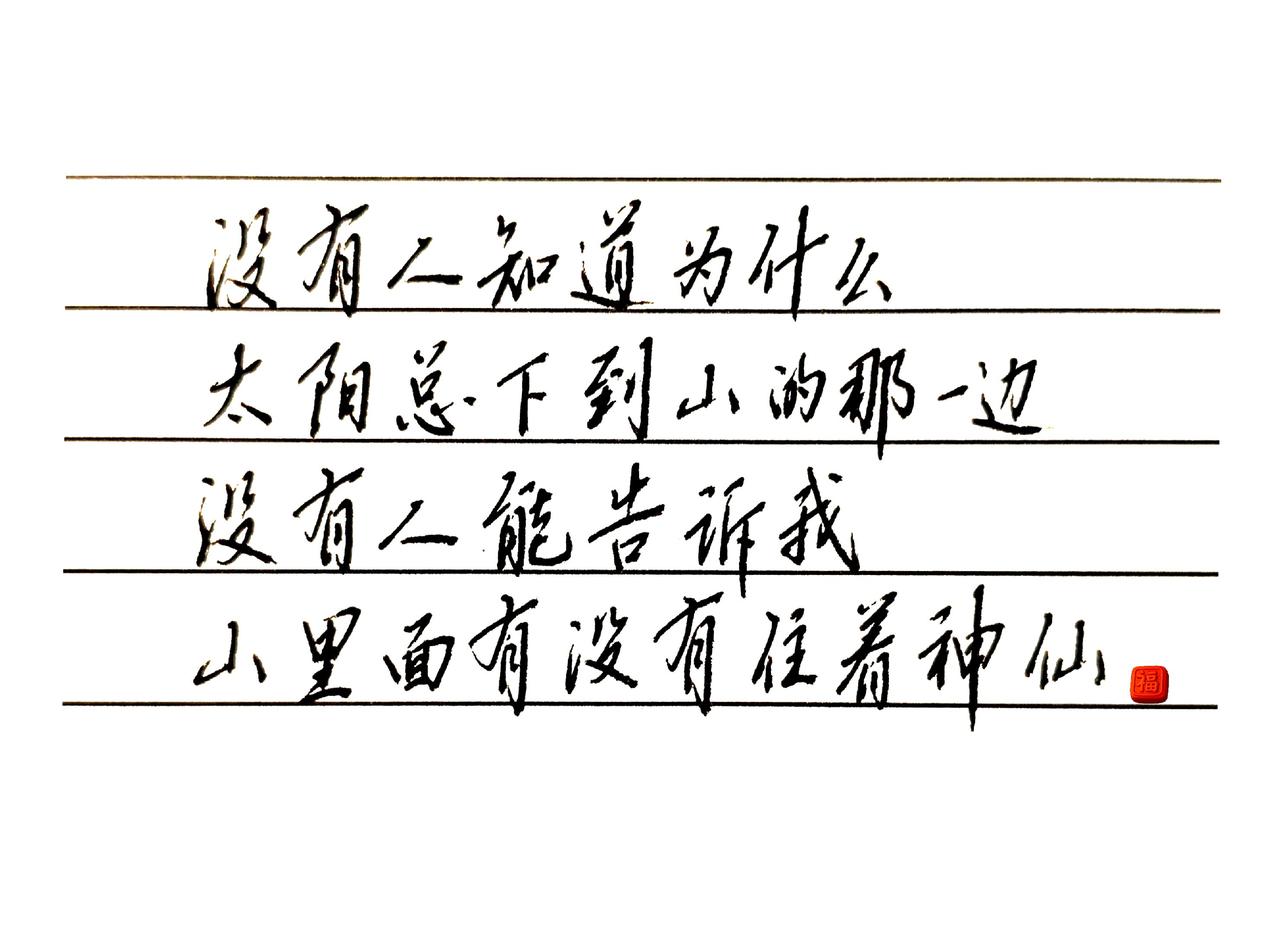 没有人知道为什么
太阳总下到山的那一边
没有人能告诉我
山里面有没有住着神仙
福